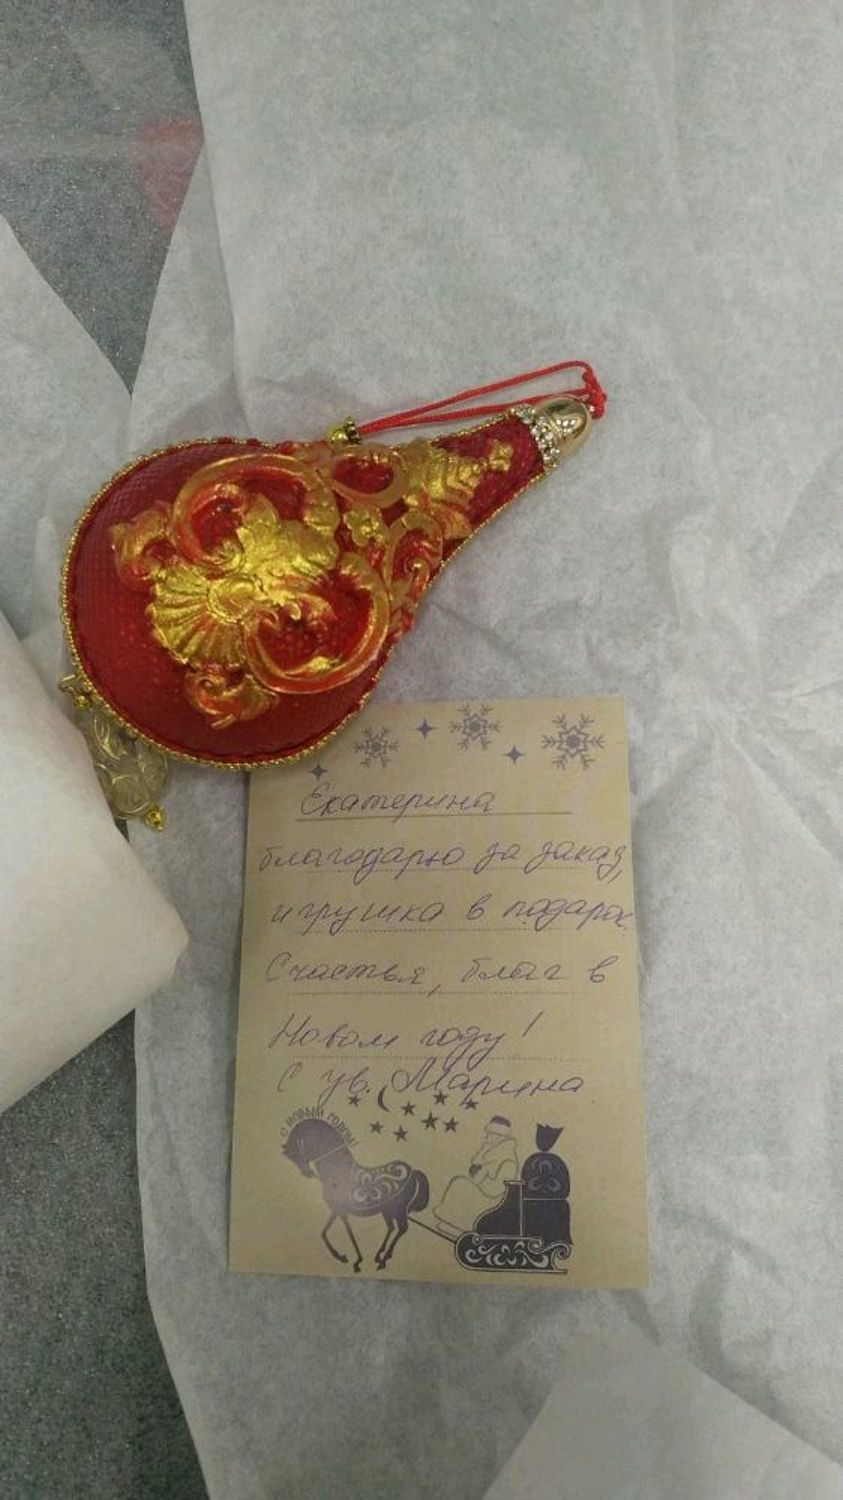 Екатерина
благодарю за заказ,
игрушка в подарок.
Счастья, благ в
Новом году!
С ув. Марина
С НОВЫМ ГОДОМ!